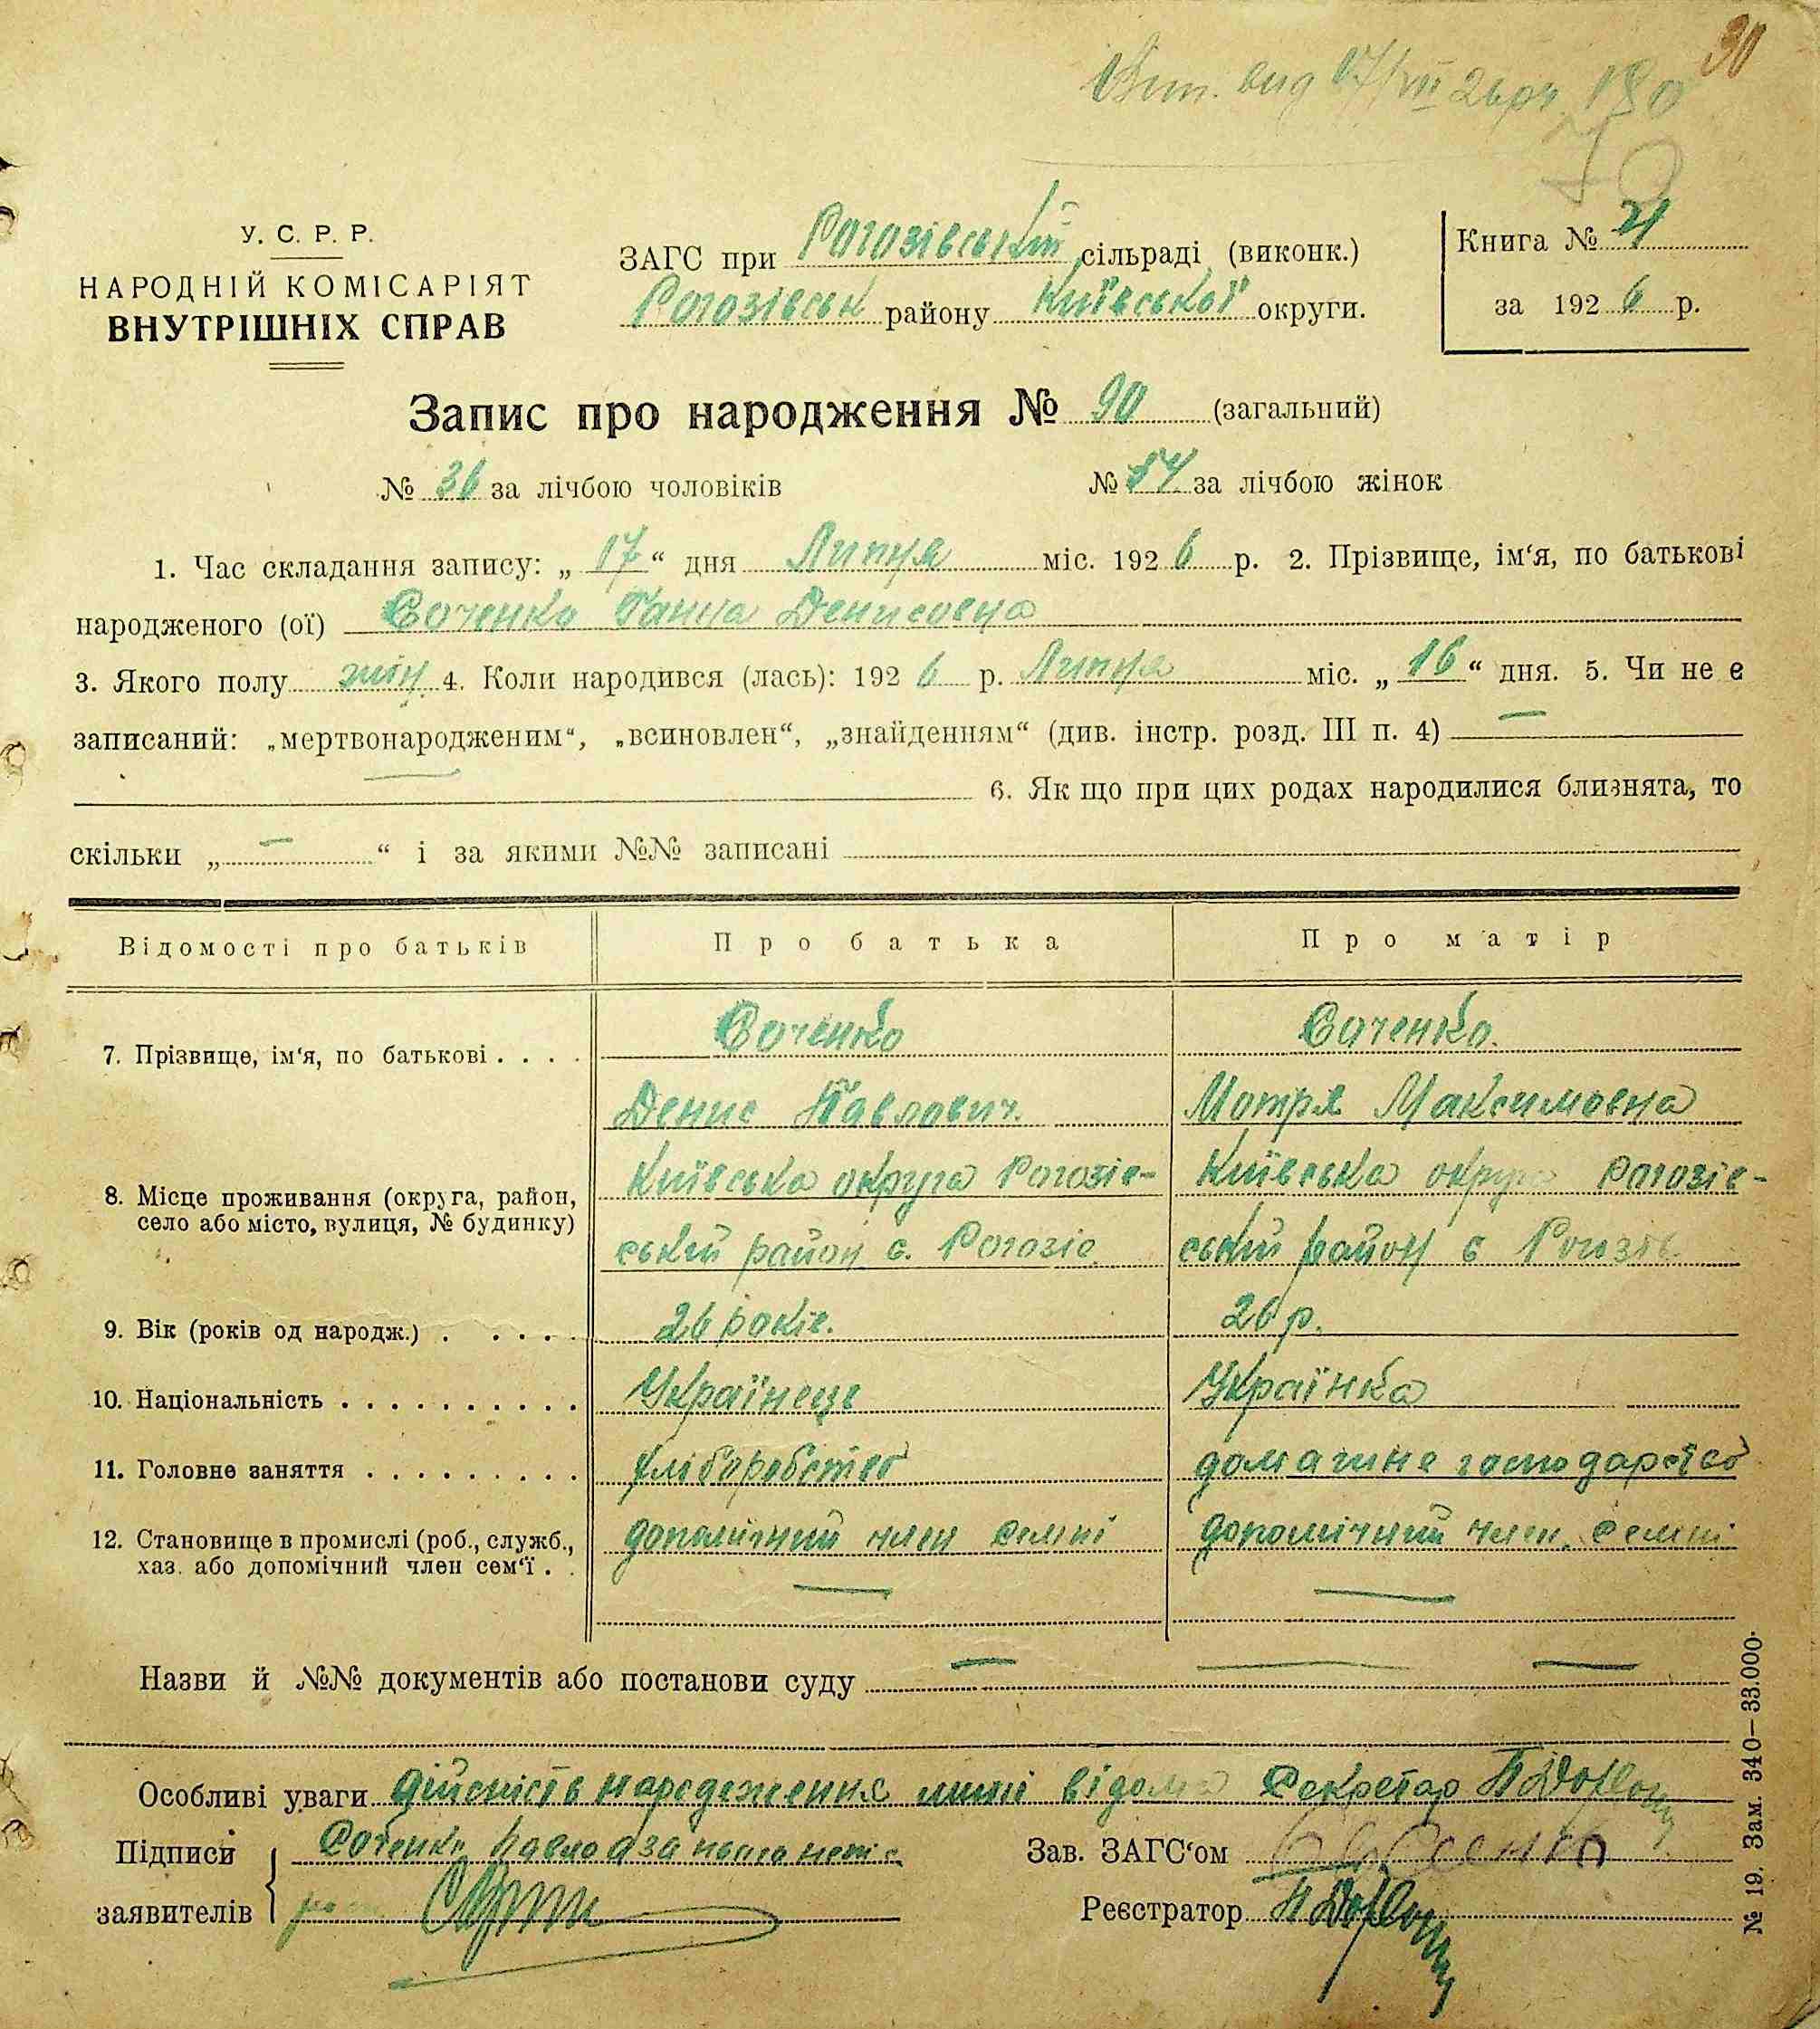 90
Вит. вид 17/VII 26 р. 180
70
У. С. Р. Р.
НАРОДНІЙ КОМІСАРІЯТ
ВНУТРІШНІХ СПРАВ
ЗАГС при Рогозівській сільраді (виконк.)
Рогозівськ району Київської округи.
Книга №
за 1926 р.
Запис про народження № 90 (загальний)
№ 36 за лічбою чоловіків № 54 за лічбою жінок
1. Час складання запису: „17“ дня Липня міс. 1926 р. 2. Прізвище, ім‘я, по батькові
народженого (ої) Соченко Ганна Денисовна
3. Якого полу жін. 4. Коли народився (лась): 1926 р. Липня міс. „16“ дня. 5. Чи не є
записаний: „мертвонародженим“, „всиновлен“, „знайденням“ (див. інстр. розд. III п. 4) —
6. Як що при цих родах народилися близнята, то
скільки „—“ і за якими №№ записані
Відомості про батьків Про батька Про матір
7. Прізвище, ім‘я, по батькові . . . . Соченко Соченко.
Денис Павлович. Мотря Максимовна
8. Місце проживання (округа, район, село або місто, вулиця, № будинку) Київська округа Рогозів- Київська округа Рогозів-
ський район с. Рогозів ський район с Рогозів
9. Вік (років од народж.) . . . . . 26 років. 26 р.
10. Національність . . . . . . . . . . Українець Українка
11. Головне заняття . . . . . . . . . . хліборобство домашнє господарство
12. Становище в промислі (роб., служб., хаз. або допомічний член сем‘ї . . допомічний член семні допомічний член. семні
Назви й №№ документів або постанови суду — — —
Особливі уваги дійсність народження мині відома Секретар
Підписи Соченко Павло а за нього непис.
заявителів
Зав. ЗАГС‘ом
Реєстратор
№ 19. Зам. 340—33.000.